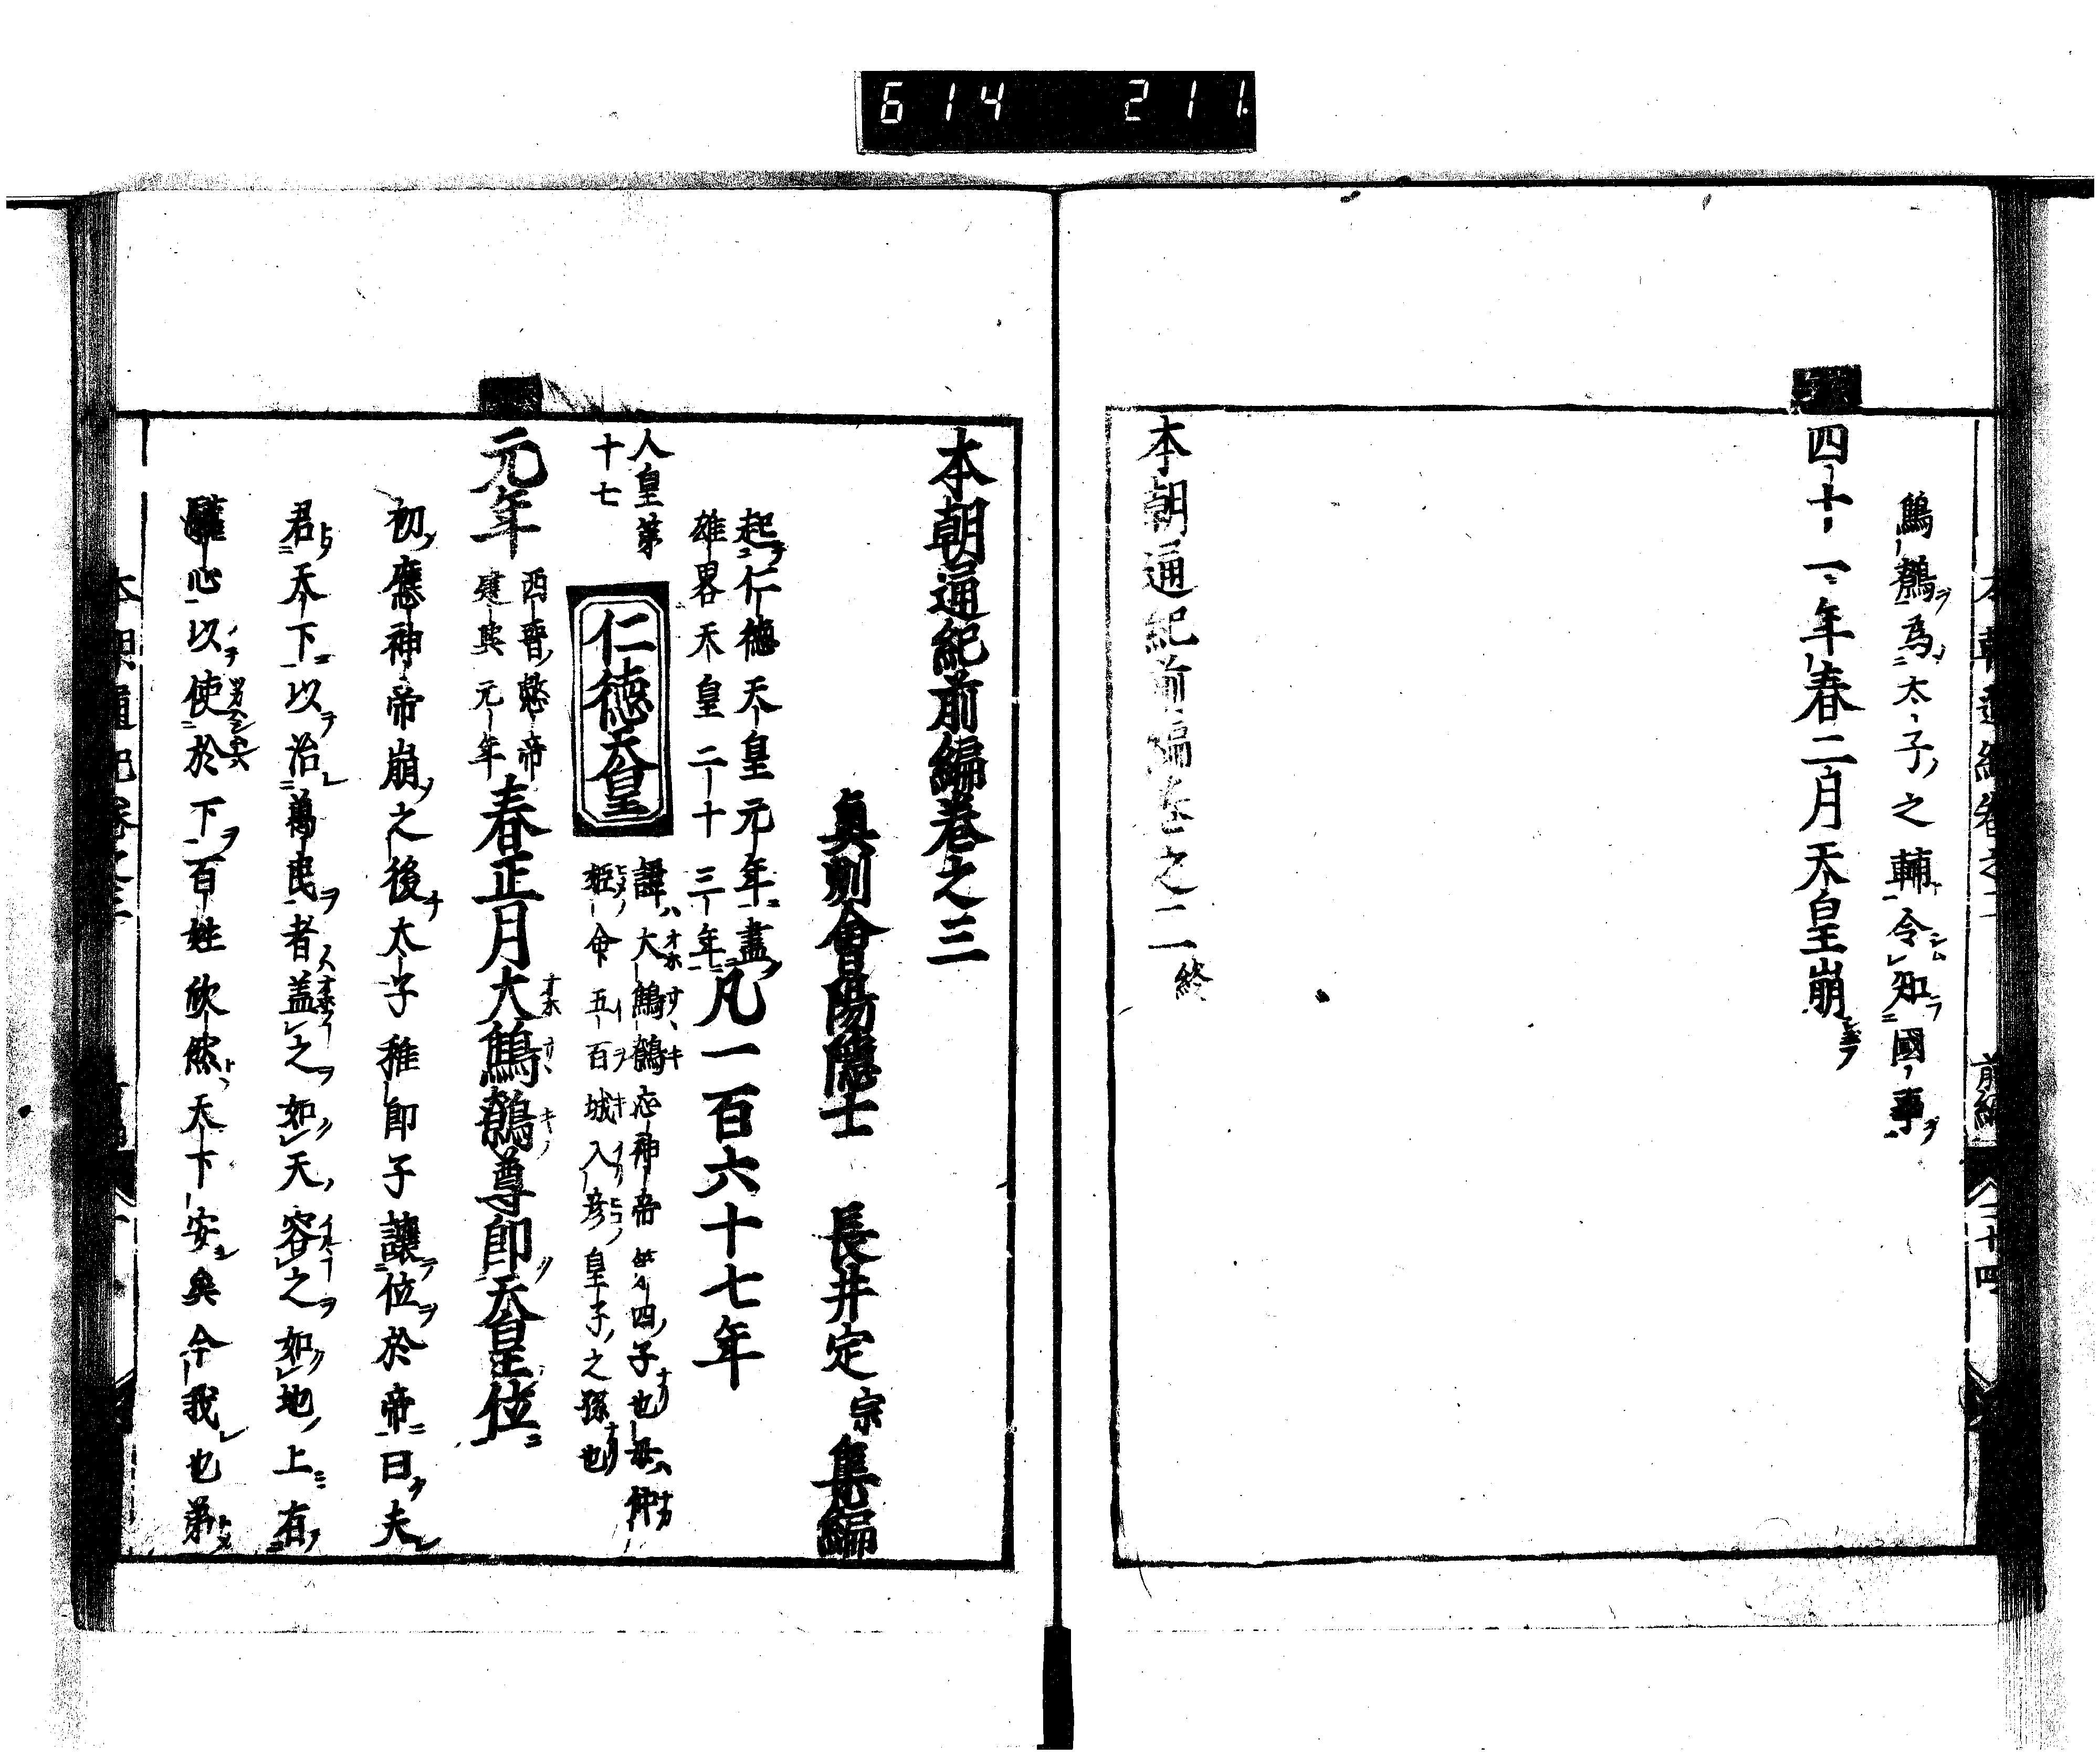 614 211
本朝通紀卷之二 前編 三十四
鷦鷯為太子之輔令知國事
四十一年春二月天皇崩
本朝通紀前編卷之二終
本朝通紀前編卷之三
奥州會陽隱士 長井定宗集編
起仁德天皇元年盡
雄畧天皇二十三年凡一百六十七年
人皇第
十七
仁德天皇
諱大鷦鷯應神帝第四子也母仲
姫命五百城入彦皇子之孫也
元年
西晋愍帝
建興元年
春正月大鷦鷯尊即天皇位
初應神帝崩之後太子稚郎子讓位於帝曰夫
君天下以治萬民者盖之如天容之如地上有
驩心以使於下百姓欣然天下安矣今我也弟
本朝通紀卷之三